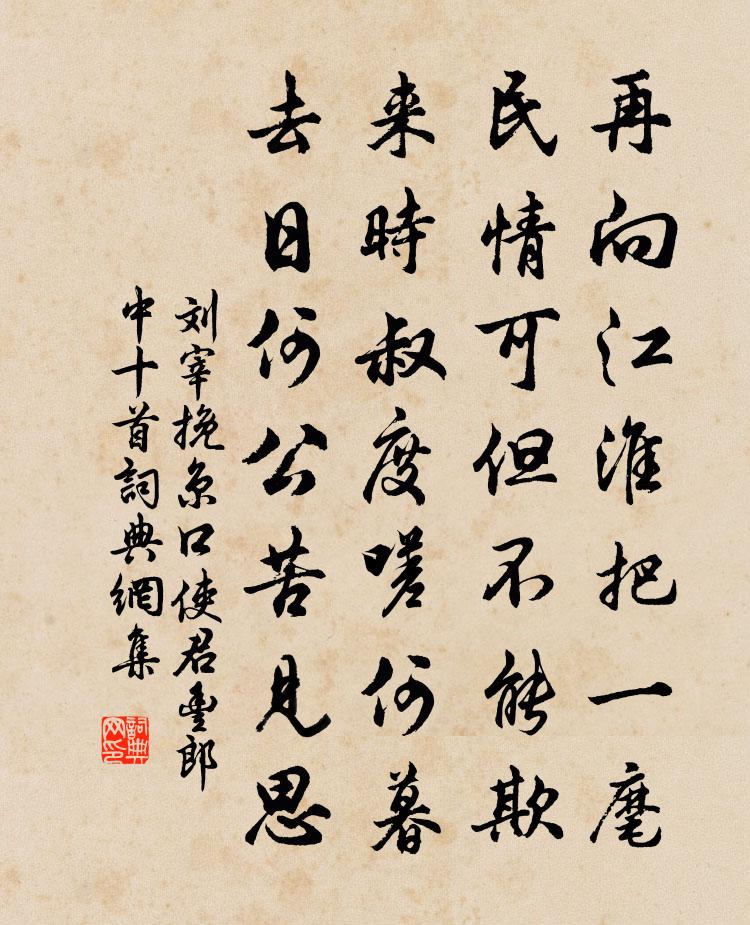 再向江淮把一麾
民情可但不能欺
来時叔度嗟何暮
去日何公苦見思
刘宰挽京口使君豊郎
中十首詞典網集
詞典網印